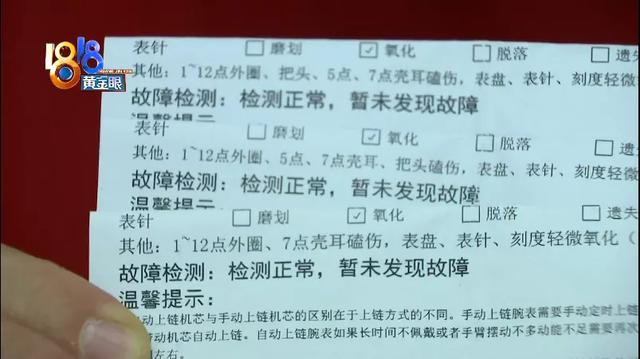 1818
黄金眼
表针 磨划 氧化 脱落 遗
其他：1~12点外圈、把头、5点、7点壳耳磕伤，表盘、表针、刻度轻微
故障检测：检测正常，暂未发现故障
温馨提示：
表针 磨划 氧化 脱落 遗
其他：1~12点外圈、5点、7点壳耳、把头磕伤，表盘、表针、刻度轻微
故障检测：检测正常，暂未发现故障
温馨提示：
表针 磨划 氧化 脱落 遗失
其他：1~12点外圈、7点壳耳磕伤，表盘、表针、刻度轻微氧化（
故障检测：检测正常，暂未发现故障
温馨提示：
动上链机芯与手动上链机芯的区别在于上链方式的不同。手动上链腕表需要手动定时上链
动机芯自动上链。自动上链腕表如果长时间不佩戴或者手臂摆动不多动能不足需要再次
左右。